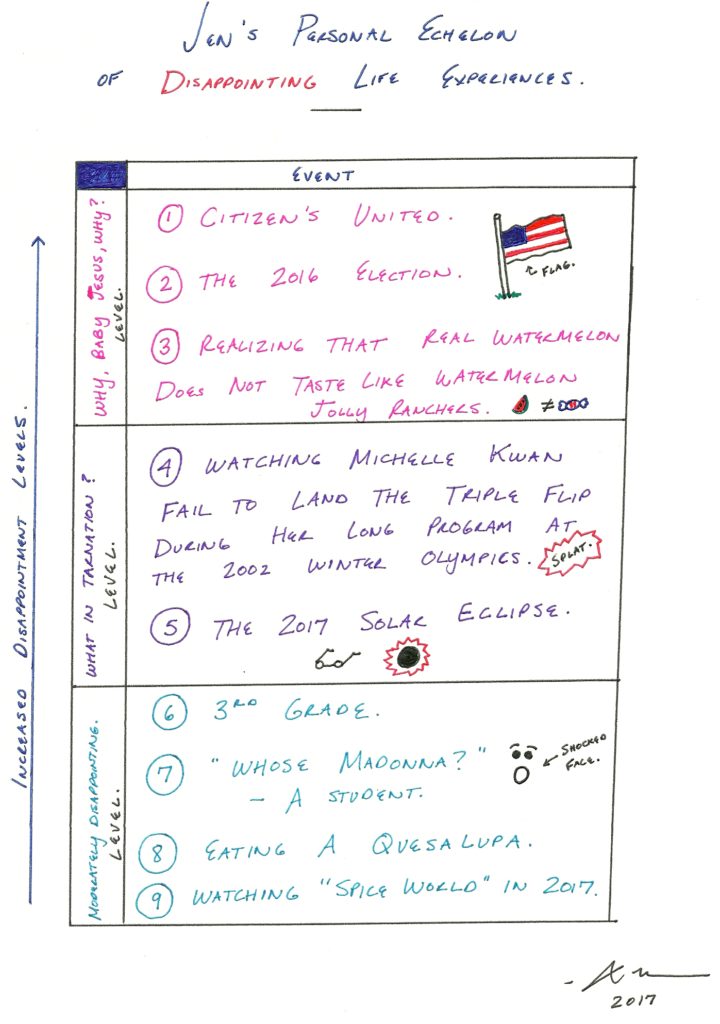 Jen's Personal Echelon
of Disappointing Life Experiences.
Event
Increased Disappointment Levels.
Why, Baby Jesus, Why?
Level.
① Citizen's United.
② The 2016 Election.
Flag.
③ Realizing that real watermelon
does not taste like watermelon
Jolly Ranchers. ≠
What in tarnation?
Level.
④ Watching Michelle Kwan
fail to land the triple flip
during her long program at
the 2002 Winter Olympics.
Splat.
⑤ The 2017 Solar Eclipse.
Moderately Disappointing.
Level.
⑥ 3rd Grade.
⑦ "Whose Madonna?"
- A student.
Shocked
face.
⑧ Eating a Quesalupa.
⑨ Watching "Spice World" in 2017.
2017